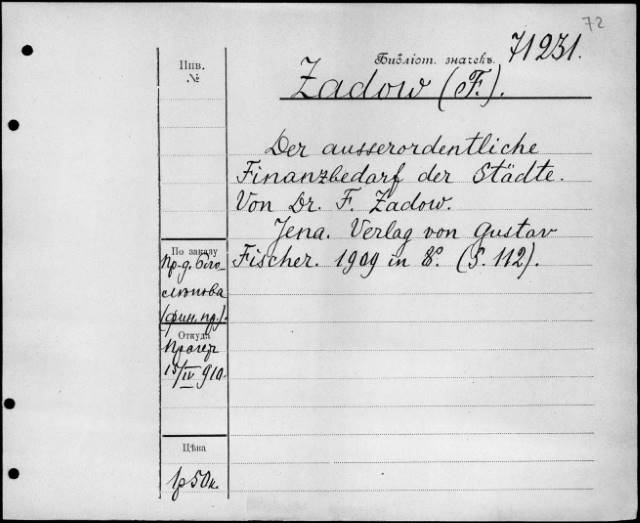 72
Библіот. значекъ. 71231.
Инв.
№
Zadow (F.).
Der ausserordentliche
Finanzbedarf der Städte.
Von Dr. F. Zadow.
Jena. Verlag von Gustav
Fischer. 1909 in 8°. (S. 112).
По заказу
пр-д. Бого-
лѣпова
(фин. пр.).
Откуда
Прагер
15/IV 910.
Цѣна
1р 50к.